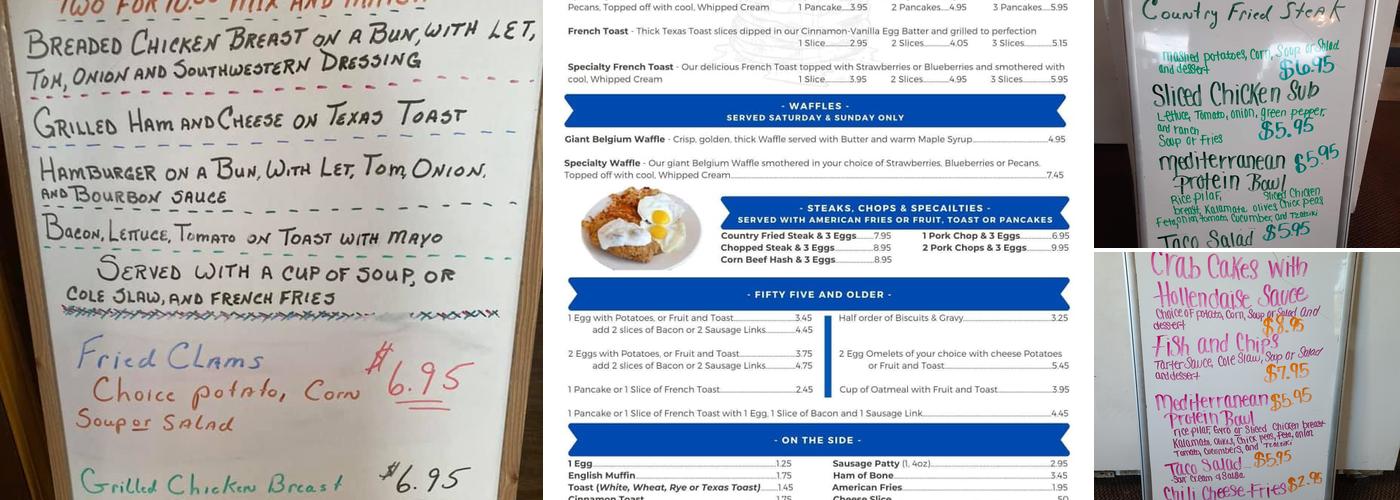 TWO FOR 10.00 MIX AND MATCH
BREADED CHICKEN BREAST ON A BUN, WITH LET,
TOM, ONION AND SOUTHWESTERN DRESSING
GRILLED HAM AND CHEESE ON TEXAS TOAST
HAMBURGER ON A BUN, WITH LET, TOM, ONION,
AND BOURBON SAUCE
BACON, LETTUCE, TOMATO ON TOAST WITH MAYO
SERVED WITH A CUP OF SOUP, OR
COLE SLAW, AND FRENCH FRIES
Fried Clams $6.95
Choice potato, Corn
Soup or Salad
Grilled Chicken Breast $6.95
Pecans, Topped off with cool, Whipped Cream 1 Pancake...3.95 2 Pancakes...4.95 3 Pancakes...5.95
French Toast - Thick Texas Toast slices dipped in our Cinnamon-Vanilla Egg Batter and grilled to perfection
1 Slice...2.95 2 Slices...4.05 3 Slices...5.15
Specialty French Toast - Our delicious French Toast topped with Strawberries or Blueberries and smothered with
cool, Whipped Cream 1 Slice...3.95 2 Slices...4.95 3 Slices...5.95
- WAFFLES -
SERVED SATURDAY & SUNDAY ONLY
Giant Belgium Waffle - Crisp, golden, thick Waffle served with Butter and warm Maple Syrup...4.95
Specialty Waffle - Our giant Belgium Waffle smothered in your choice of Strawberries, Blueberries or Pecans.
Topped off with cool, Whipped Cream...7.45
- STEAKS, CHOPS & SPECAILTIES -
SERVED WITH AMERICAN FRIES OR FRUIT, TOAST OR PANCAKES
Country Fried Steak & 3 Eggs...7.95 1 Pork Chop & 3 Eggs...6.95
Chopped Steak & 3 Eggs...8.95 2 Pork Chops & 3 Eggs...9.95
Corn Beef Hash & 3 Eggs...8.95
- FIFTY FIVE AND OLDER -
1 Egg with Potatoes, or Fruit and Toast...3.45
add 2 slices of Bacon or 2 Sausage Links...4.45
2 Eggs with Potatoes, or Fruit and Toast...3.75
add 2 slices of Bacon or 2 Sausage Links...4.75
1 Pancake or 1 Slice of French Toast...2.45
Half order of Biscuits & Gravy...3.25
2 Egg Omelets of your choice with cheese Potatoes
or Fruit and Toast...5.45
Cup of Oatmeal with Fruit and Toast...3.95
1 Pancake or 1 Slice of French Toast with 1 Egg, 1 Slice of Bacon and 1 Sausage Link...4.45
- ON THE SIDE -
1 Egg...1.25 Sausage Patty (1, 4oz)...2.95
English Muffin...1.75 Ham of Bone...3.45
Toast (White, Wheat, Rye or Texas Toast)...1.45 American Fries...1.95
Cinnamon Toast...1.75 Cheese Slice...50
Country Fried Steak
mashed potatoes, Corn, Soup or Salad
and dessert $6.95
Sliced Chicken Sub
Lettuce, Tomato, onion, green pepper,
and ranch $5.95
Soup or Fries
mediterranean $5.95
Protein Bowl
Rice pilaf, Sliced Chicken
breast, Kalamata olives, Chick peas,
Feta, onion, tomato, Cucumber, and Tzatziki
Taco Salad $5.95
Crab Cakes with
Hollendaise Sauce
Choice of potato, Corn, Soup or Salad and
dessert $8.95
Fish and Chips
Tarter Sauce, Cole Slaw, Soup or Salad
and dessert $7.95
Mediterranean $5.95
Protein Bowl
rice pilaf, Gyro or Sliced Chicken breast
Kalamata olives, Chick peas, Feta, onion
Tomato, Cucumbers, and Tzatziki
Taco Salad $5.95
Sour Cream & Salsa
Chili Cheese Fries $2.95